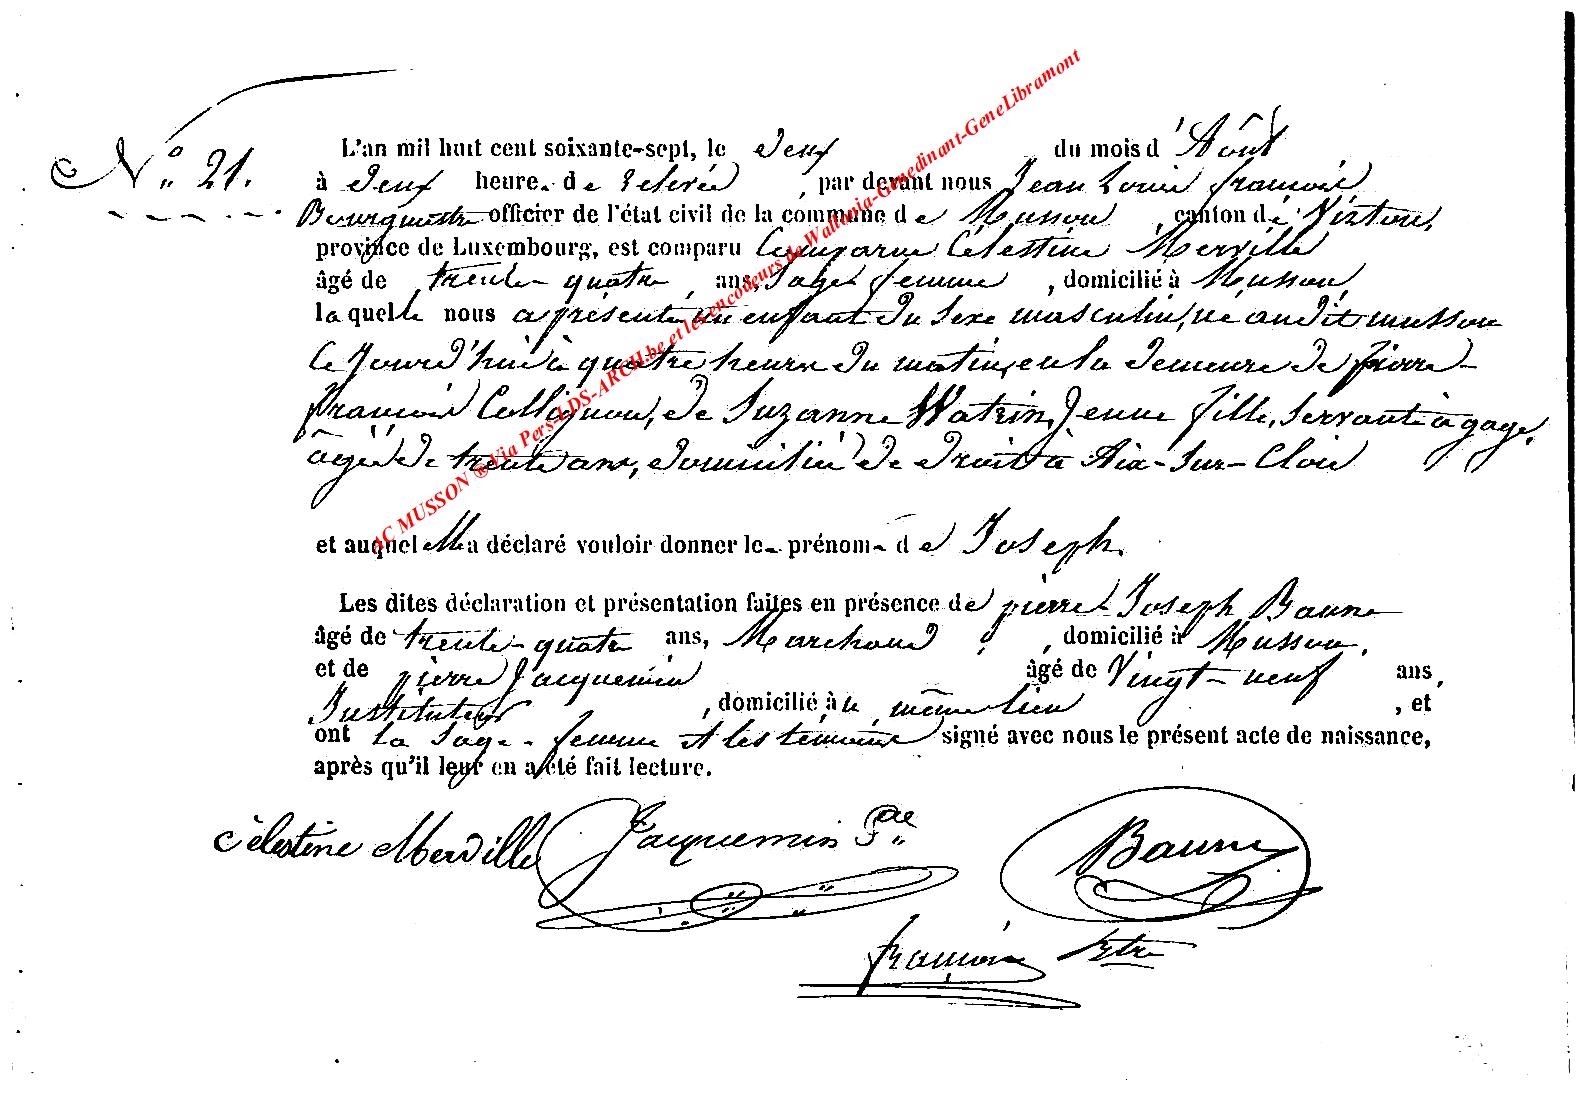 N° 21.
L'an mil huit cent soixante-sept, le deux du mois d'Août
à deux heure. de relevée, par devant nous Jean Louis françois
Bourgmestre officier de l'état civil de la commune de Musson, canton de Virton,
province de Luxembourg, est comparu Comparue Célestine Merville
âgé de trente-quatre ans, sage femme, domicilié à Musson,
laquelle nous a présenté un enfant du sexe masculin, né audit musson
ce Jourd'hui à quatre heures du matin, en la demeure de pierre-
françois Collignon, de Suzanne Watrin, Jeune fille, servante à gage,
âgée de trente ans, domicilié de droit à Aix-sur-Cloie
et auquel elle a déclaré vouloir donner le prénom de Joseph.
Les dites déclaration et présentation faites en présence de pierre-Joseph Baune
âgé de trente-quatre ans, Marchand, domicilié à Musson,
et de pierre Jacquemin âgé de Vingt-neuf ans,
Instituteur, domicilié au même lieu, et
ont la sage-femme et les témoins signé avec nous le présent acte de naissance,
après qu'il leur en a été fait lecture.
Célestine Merville Jacquemin Baune
françois Bstre
AC MUSSON ® Via Pers-LDS-ARCH.be et les encodeurs de Wallonia-Genedinant-GeneLibramont